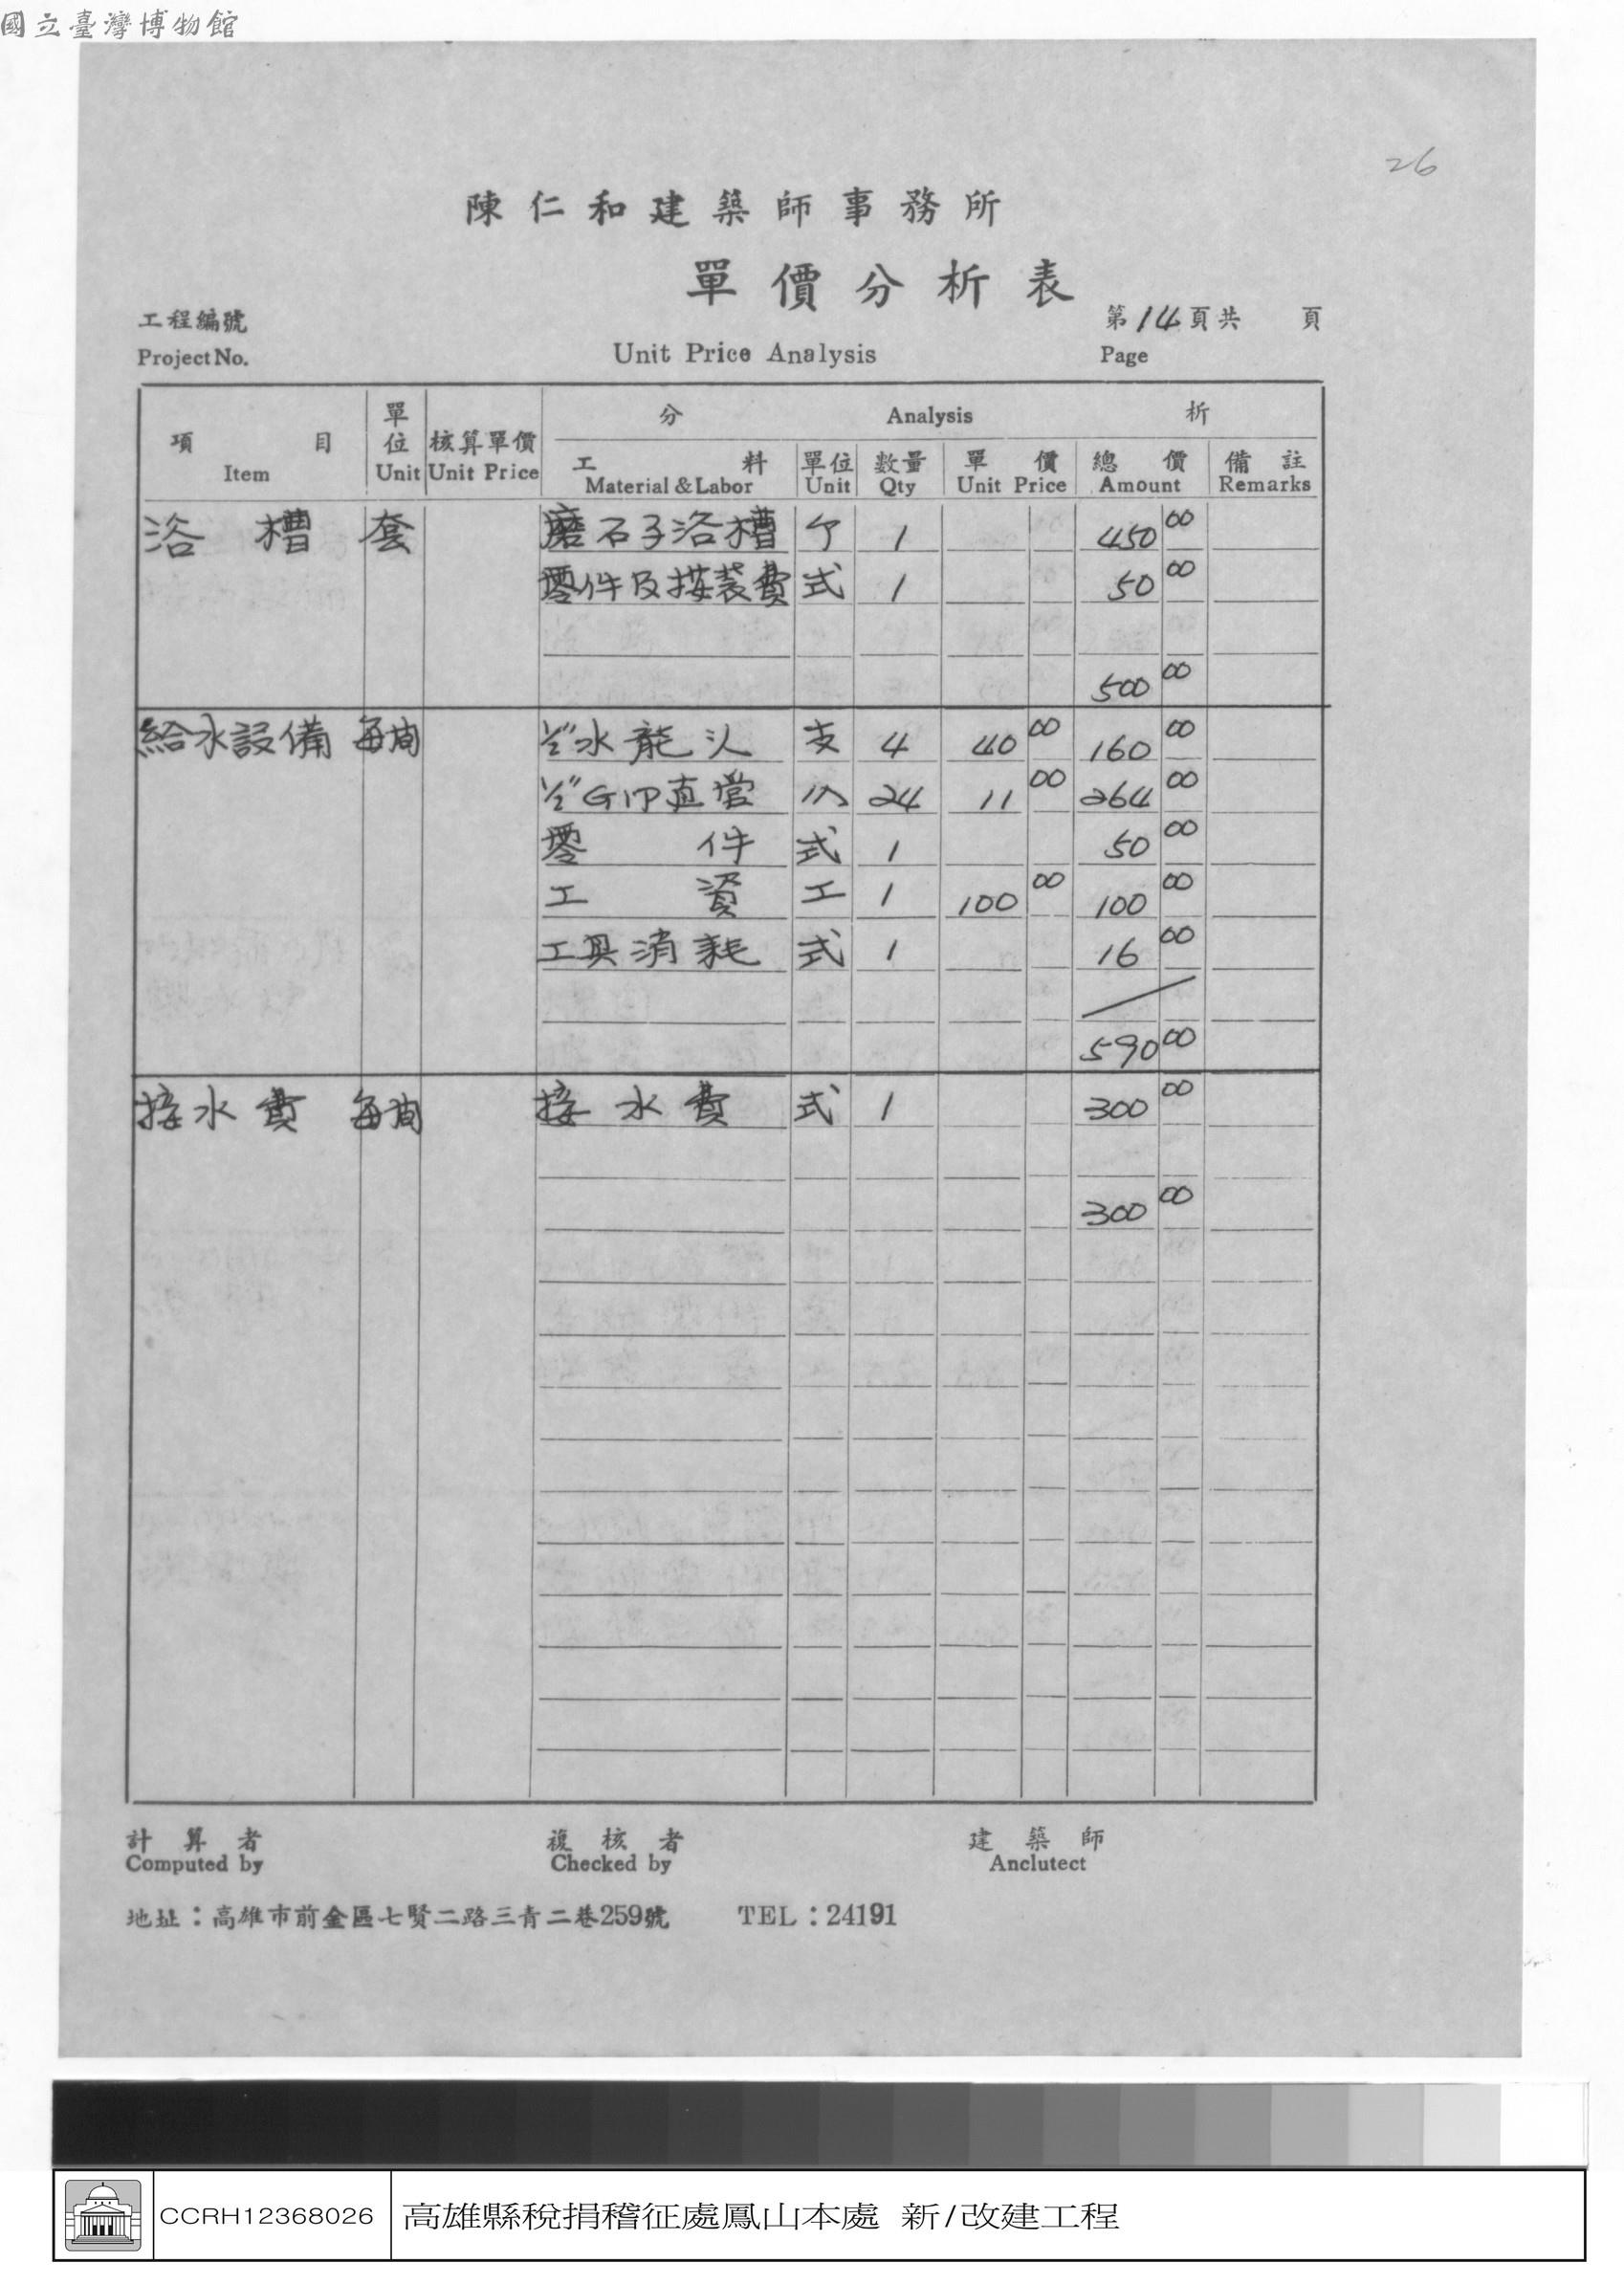 國立臺灣博物館
26
陳仁和建築師事務所
單價分析表
工程編號 第14頁共 頁
Project No. Unit Price Analysis Page
項目 單位 核算單價 分 Analysis 析
Item Unit Unit Price 工料 單位 数量 單價 總價 備註
Material & Labor Unit Qty Unit Price Amount Remarks
浴槽 套 磨石子浴槽 个 1 450 00
零件及按裝費 式 1 50 00
500 00
給水設備 每間 1/2"水龍头 支 4 40 00 160 00
1/2"GIP直管 24 11 00 264 00
零件 式 1 50 00
工資 工 1 100 00 100 00
工具消耗 式 1 16 00
590 00
接水費 每間 接水費 式 1 300 00
300 00
計算者 複核者 建築師
Computed by Checked by Anclutect
地址：高雄市前金區七賢二路三青二巷259號 TEL：24191
CCRH12368026 高雄縣稅捐稽征處鳳山本處 新/改建工程